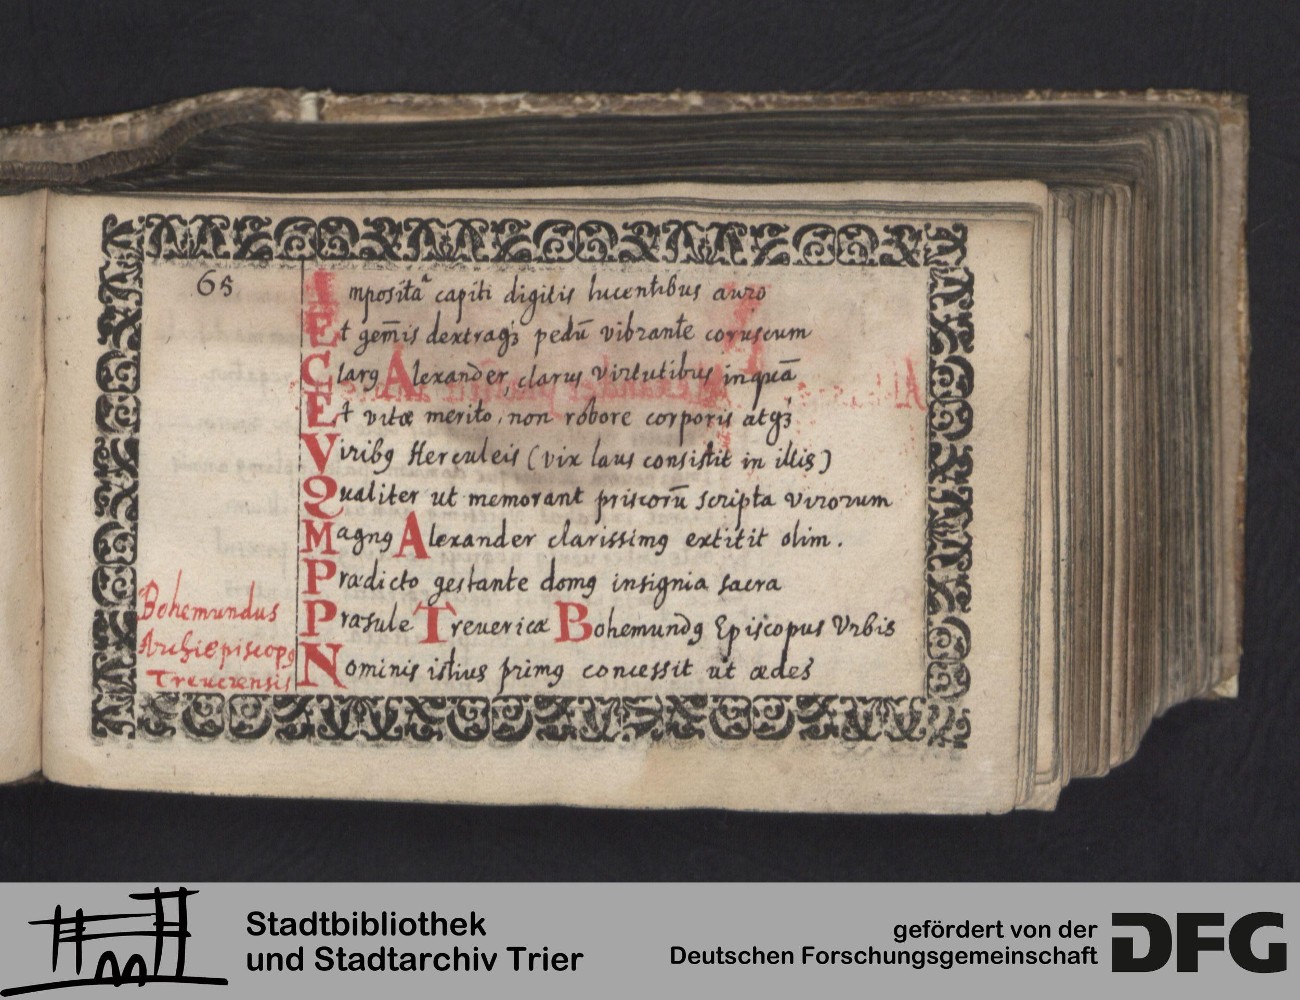 65
Imposita capiti digitis lucentibus auro
Et gem̄is dextraqꝫ pedū vibrante coruscum
Clarꝯ Alexander, clarus virtutibus inquā
Et vitæ merito, non robore corporis atqꝫ
Viribꝯ Herculeis (vix laus consistit in illis)
Qualiter ut memorant priscorū scripta virorum
Magnꝯ Alexander clarissimꝯ extitit olim.
Prædicto gestante domꝯ insignia sacra
Præsule Trevericæ Bohemundꝯ Episcopus Vrbis
Nominis istius primꝯ concessit ut ædes
Bohemundus
Archiepiscopꝯ
Treverensis
Stadtbibliothek
und Stadtarchiv Trier
gefördert von der
Deutschen Forschungsgemeinschaft
DFG